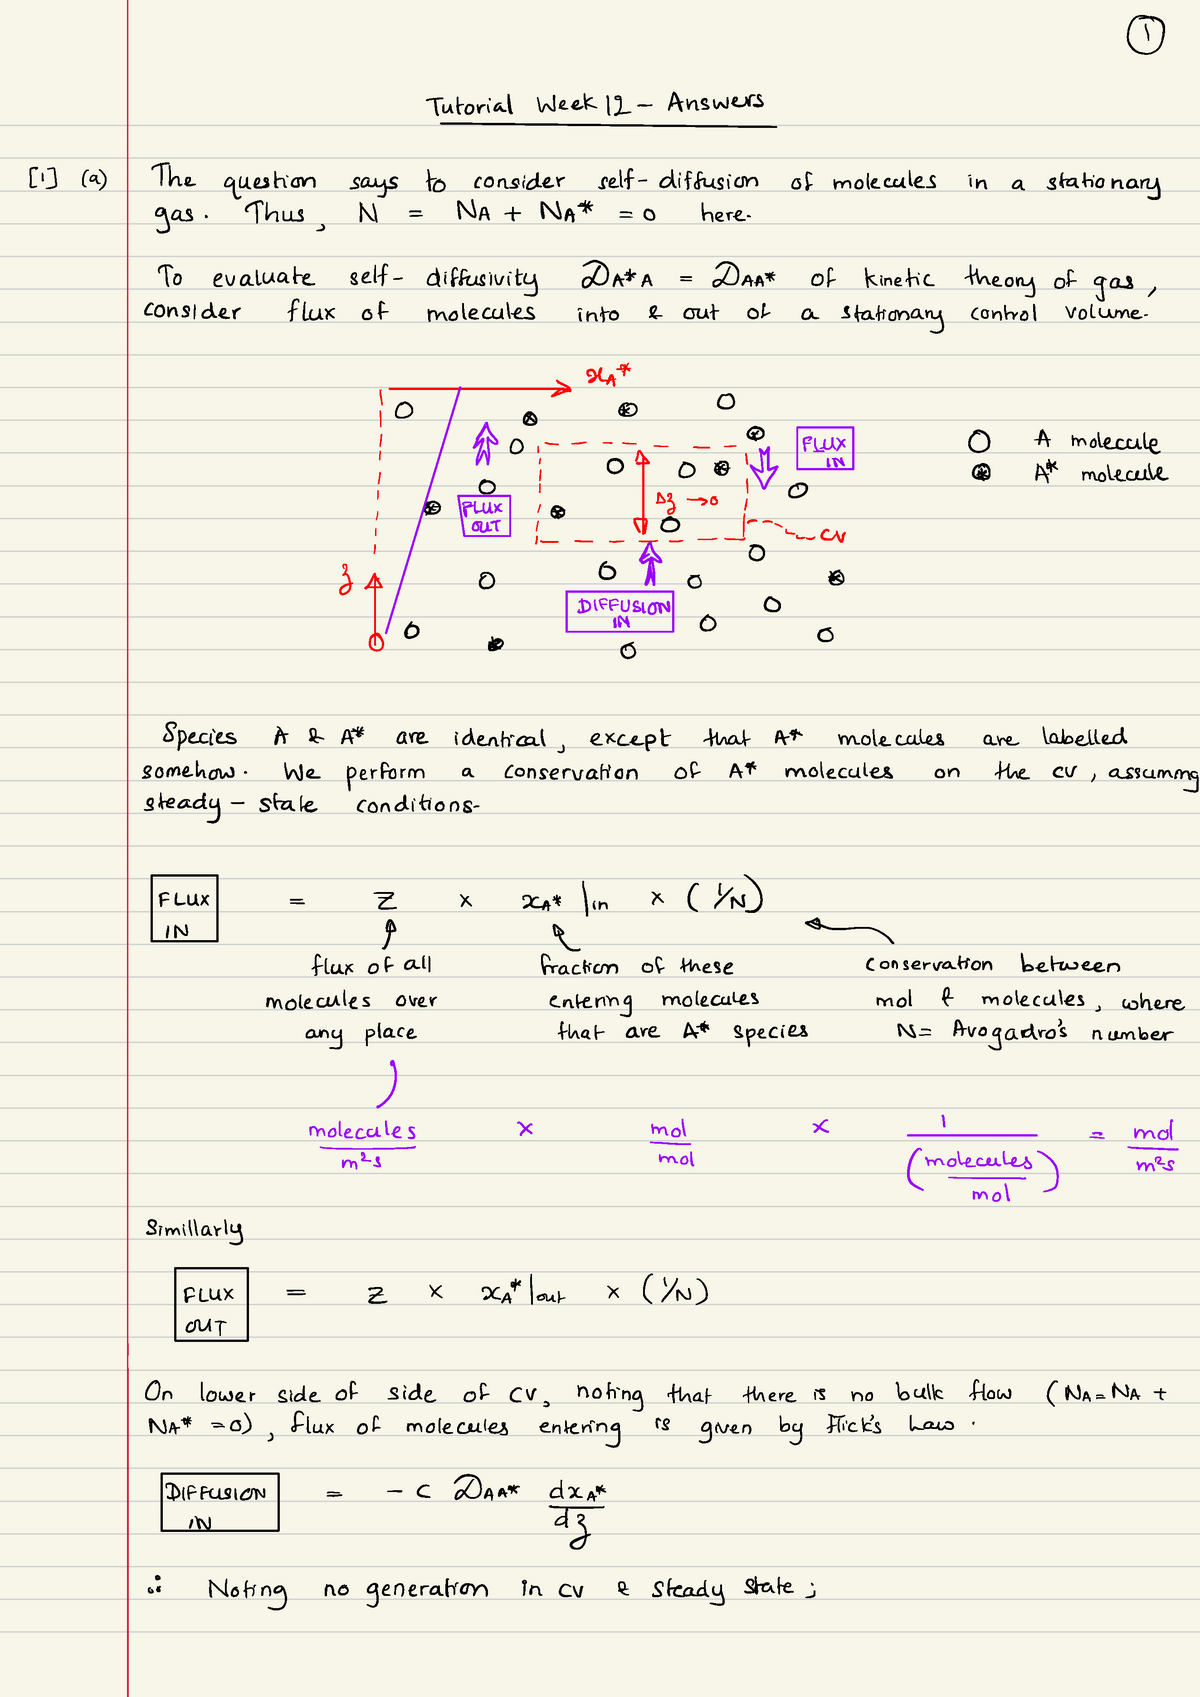 1
Tutorial Week 12 - Answers
[1] (a) The question says to consider self-diffusion of molecules in a stationary
gas. Thus, N = NA + NA* = 0 here.
To evaluate self-diffusivity DA*A = DAA* of kinetic theory of gas,
consider flux of molecules into & out of a stationary control volume.
xA*
FLUX
IN
A molecule
A* molecule
FLUX
OUT
Δz → 0
CV
z
DIFFUSION
IN
Species A & A* are identical, except that A* molecules are labelled
somehow. We perform a conservation of A* molecules on the CV, assuming
steady-state conditions.
FLUX
IN
= Z × xA*|in × (1/N)
flux of all
molecules over
any place
fraction of these
entering molecules
that are A* species
conservation between
mol & molecules, where
N = Avogadro's number
molecules/m²s × mol/mol × 1/(molecules/mol) = mol/m²s
Simillarly
FLUX
OUT
= Z × xA*|out × (1/N)
On lower side of side of CV, noting that there is no bulk flow (NA = NA +
NA* = 0), flux of molecules entering is given by Fick's Law.
DIFFUSION
IN
= - C DAA* dxA*/dz
∴ Noting no generation in CV & steady state;